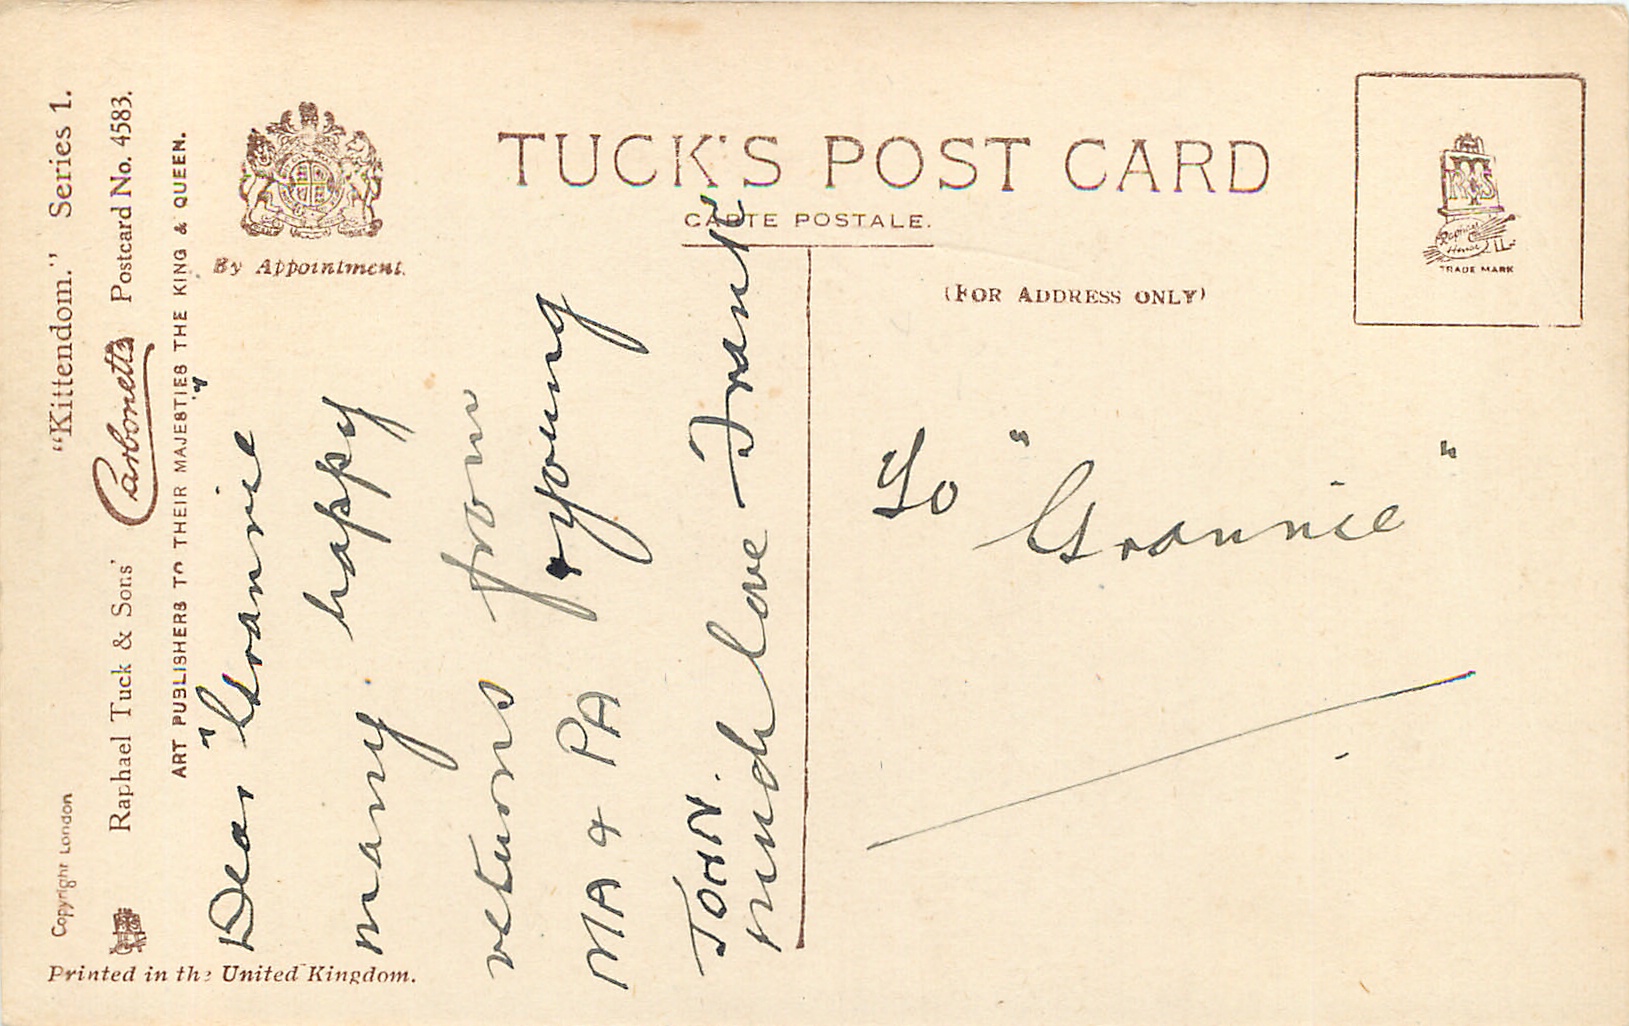 "Kittendom." Series 1.
Copyright London
Raphael Tuck & Sons' Carbonette Postcard No. 4583.
ART PUBLISHERS TO THEIR MAJESTIES THE KING & QUEEN.
By Appointment.
Printed in the United Kingdom.
TUCK'S POST CARD
CARTE POSTALE.
(FOR ADDRESS ONLY)
R T S
Raphael House
TRADE MARK
Dear "Grannie"
many happy
returns from
MA & PA & young
JOHN.
much love Frank
To "Grannie"